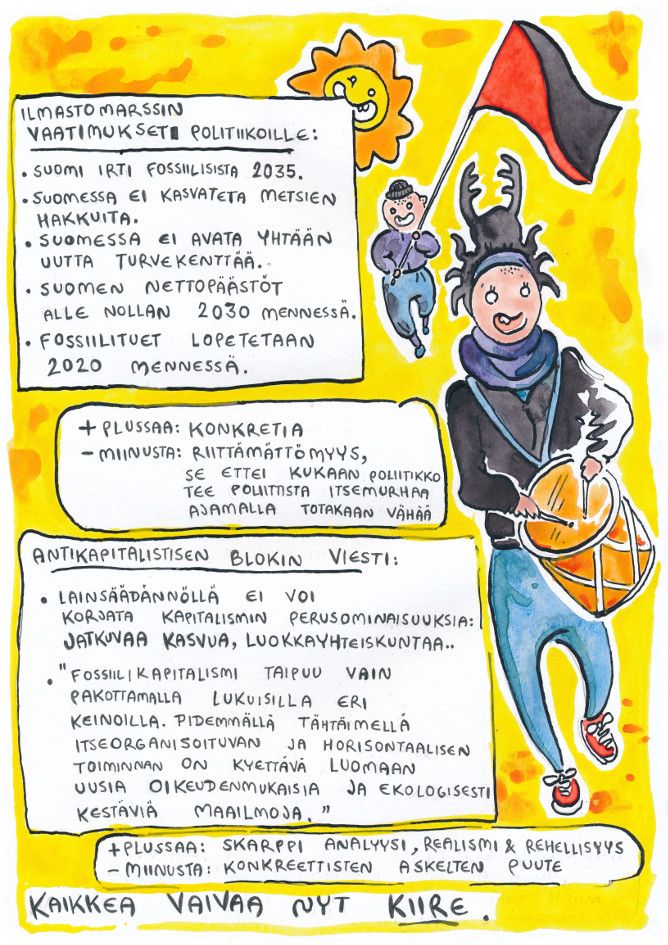 ILMASTOMARSSIN
VAATIMUKSET POLITIIKOILLE:
• SUOMI IRTI FOSSIILISISTA 2035.
• SUOMESSA EI KASVATETA METSIEN
HAKKUITA.
• SUOMESSA EI AVATA YHTÄÄN
UUTTA TURVEKENTTÄÄ.
• SUOMEN NETTOPÄÄSTÖT
ALLE NOLLAN 2030 MENNESSÄ.
• FOSSIILITUET LOPETETAAN
2020 MENNESSÄ.
+ PLUSSAA: KONKRETIA
- MIINUSTA: RIITTÄMÄTTÖMYYS,
SE ETTEI KUKAAN POLIITIKKO
TEE POLIITTISTA ITSEMURHAA
AJAMALLA TOTAKAAN VÄHÄÄ
ANTIKAPITALISTISEN BLOKIN VIESTI:
• LAINSÄÄDÄNNÖLLÄ EI VOI
KORJATA KAPITALISMIN PERUSOMINAISUUKSIA:
JATKUVAA KASVUA, LUOKKAYHTEISKUNTAA..
• "FOSSIILIKAPITALISMI TAIPUU VAIN
PAKOTTAMALLA LUKUISILLA ERI
KEINOILLA. PIDEMMÄLLÄ TÄHTÄIMELLÄ
ITSEORGANISOITUVAN JA HORISONTAALISEN
TOIMINNAN ON KYETTÄVÄ LUOMAAN
UUSIA OIKEUDENMUKAISIA JA EKOLOGISESTI
KESTÄVIÄ MAAILMOJA."
+ PLUSSAA: SKARPPI ANALYYSI, REALISMI & REHELLISYYS
- MIINUSTA: KONKREETTISTEN ASKELTEN PUUTE
KAIKKEA VAIVAA NYT KIIRE.